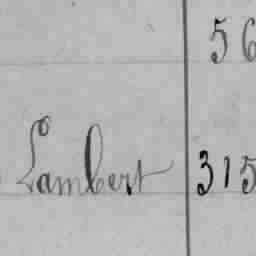 56
Lambert 315